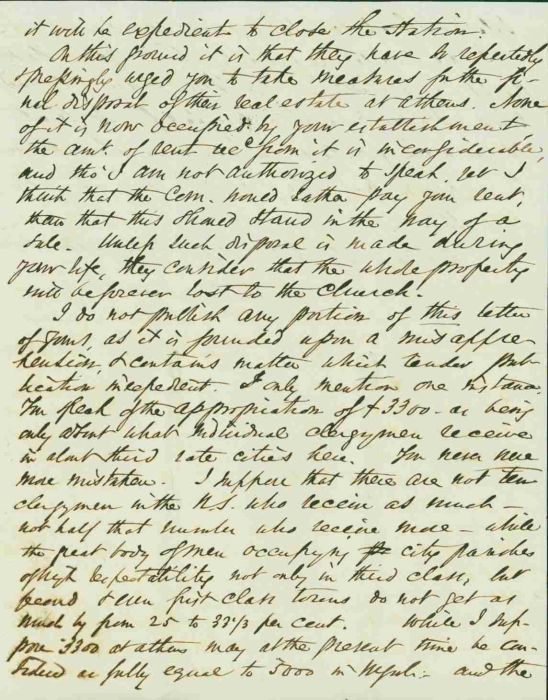 it will be expedient to close the Station.
On this ground it is that they have so repeatedly
& pressingly urged you to take measures for the fi-
nal disposal of their real estate at Athens. None
of it is now occupied by your establishment,
the amt. of rent &c from it is inconsiderable,
and tho' I am not authorized to speak, yet I
think that the Com. would rather pay your rent,
than that this should stand in the way of a
sale. Unless such disposal is made during
your life, they consider that the whole property
will be forever lost to the Church.
I do not publish any portion of this letter
of yours, as it is founded upon a misappre-
hension, & contains matter which render pub-
lication inexpedient. I only mention one instance.
You speak of the appropriation of $3300 - as being
only about what individual clergymen receive
in about third rate cities here. You never were
more mistaken. I suppose that there are not ten
clergymen in the U.S. who receive as much -
not half that number who receive more - while
the great body of men occupying city parishes
of high respectability not only in third class, but
second & even first class towns do not get as
much by from 25 to 33 1/3 per cent. While I sup-
pose 3300 at Athens may at the present time be con-
sidered as fully equal to 5000 in and the